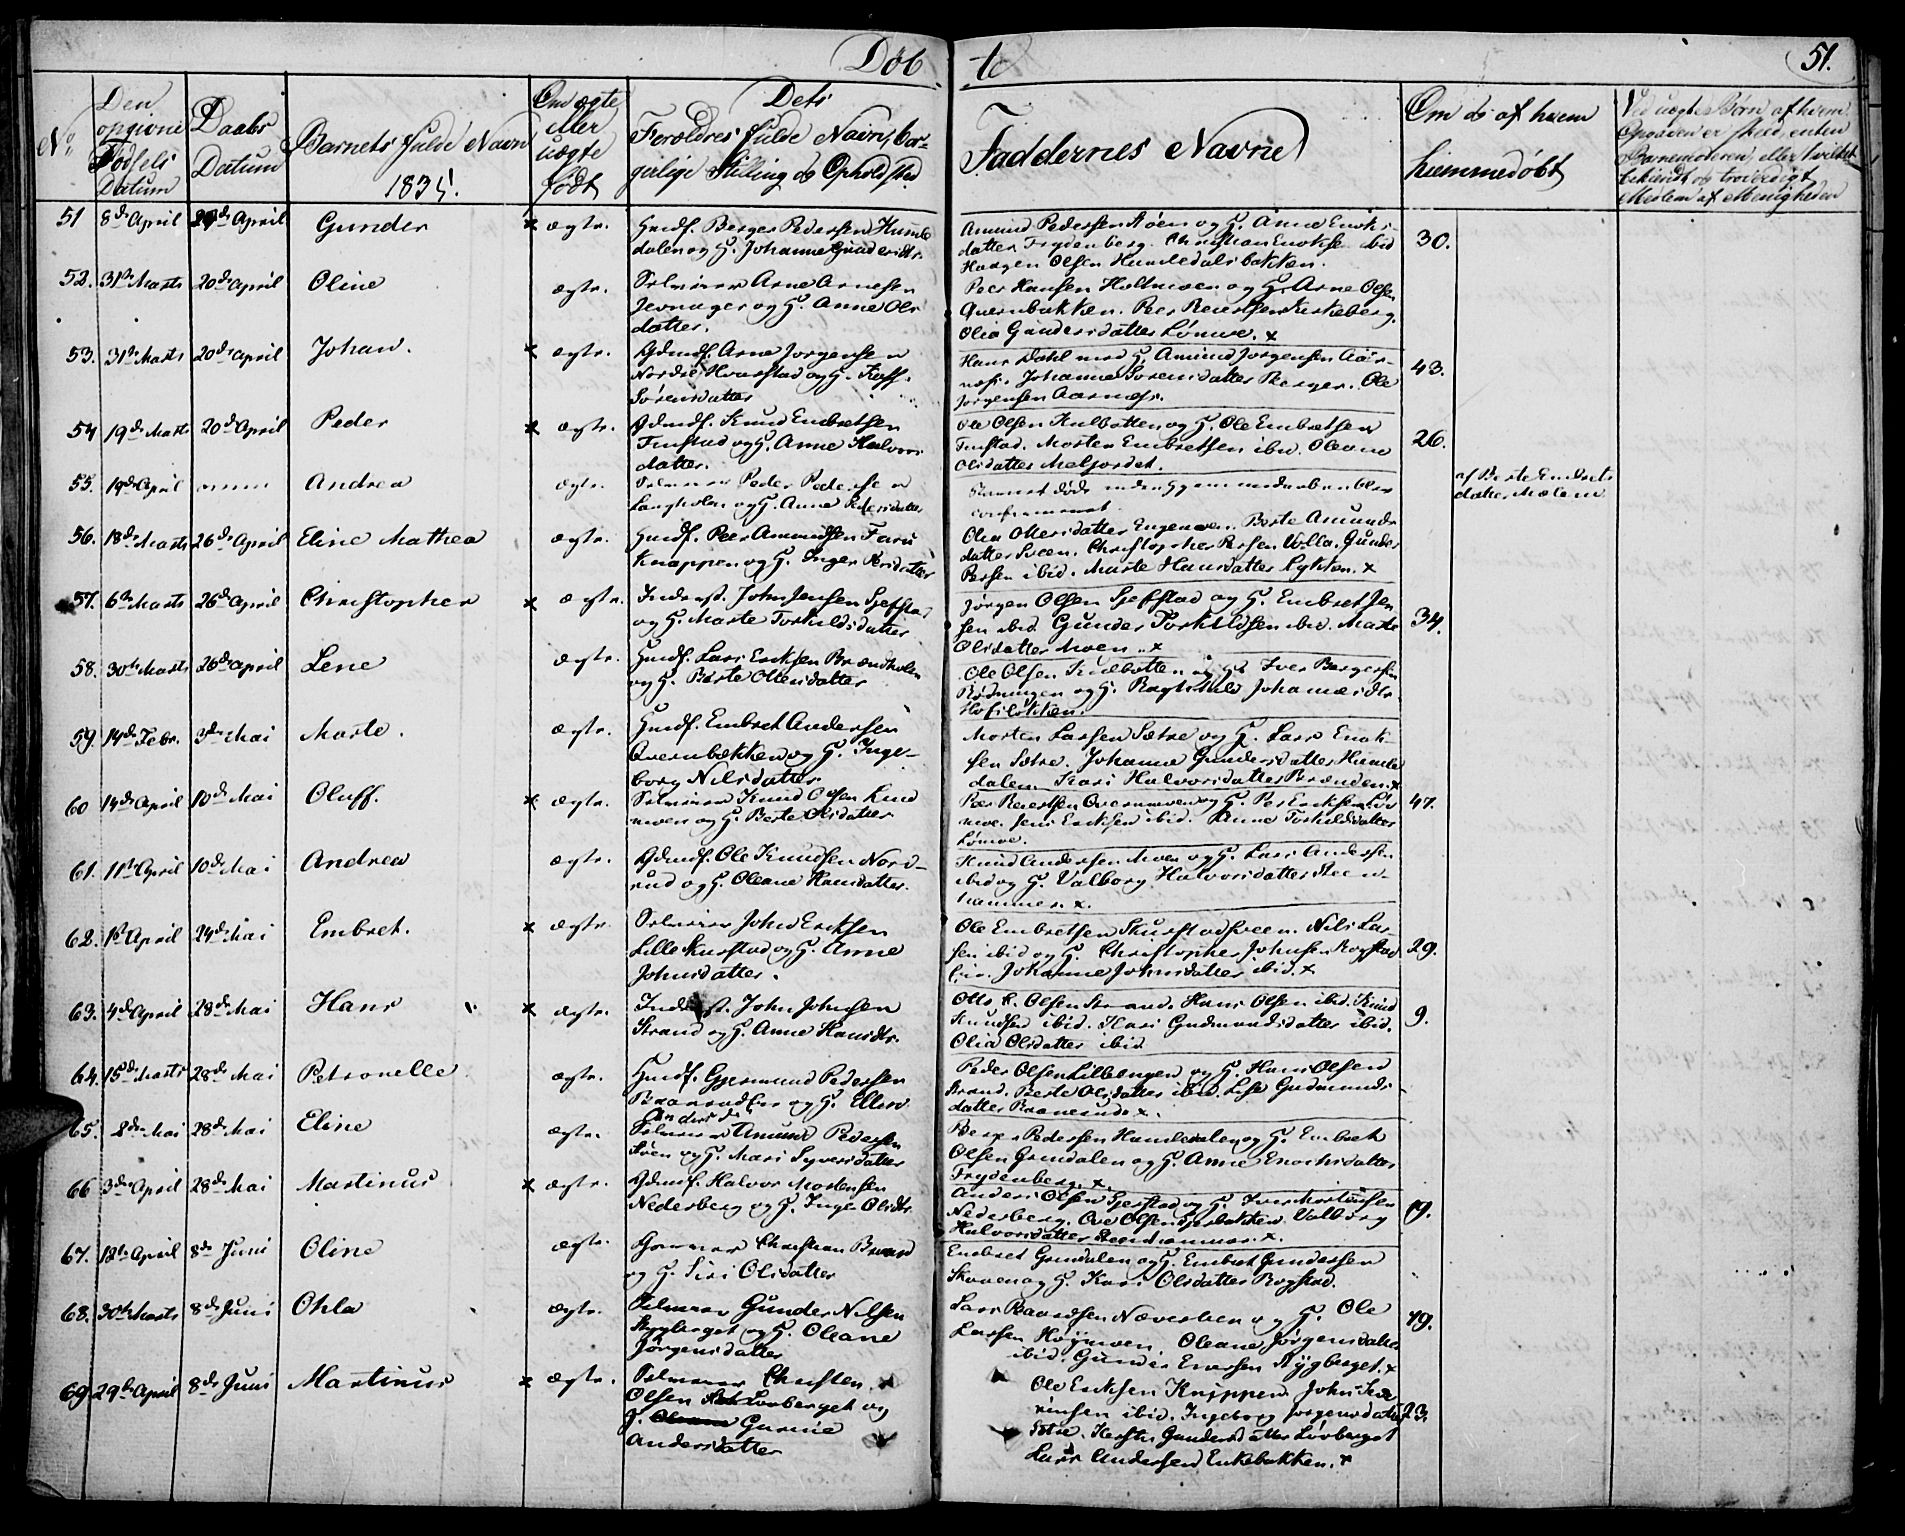 Døb te 51.
No
Den opgivne Fødsels Datum
Daabs Datum
Barnets fulde Navn 1835.
Om ægte eller uægte født
Dets Forældres fulde Navn, borgerlige Stilling og Opholdsted
Faddernes Navne
Om og af hvem hiemmedøbt
Ved uægte Børn af hvem Opgaven er skeed, enten Barnemoderen eller hvilket bekiendt og troværdigt Medlem af Menigheden
51 8de April 20de April Gunder × ægte. Huusf. Berger Pedersen Humle
dalen og H. Johanne Gundersdtr.
Amund Pedersen og H. Anne Enoks-
datter Frydenberg. Christian Enoksen ibid
Haagen Olsen Humledalsbakken. 30.
52. 31te Marts 20de April Oline ægte. Selveier Arne Arnesen
Jevnager og H. Anne Ols
datter.
Peer Hansen Holtmoen og H. Arne Olsen
Quernbakken. Peer Reiersen Kirkeberg.
Olia Gundersdatter Lømoe. ×
53. 31te Marts 20de April Johan. × ægte. Gdmdf. Arne Jorgensen
Nordre Hvarstad og H.
Sørensdatter
Hans Dahl med H. Amund Jorgensen Aar-
næs. Johanne Sorensdatter Berger. Ole
Jorgensen Aarnæs. 43.
54 19de Marts 20de April Peder × ægte. Gdmdf. Knud Embretsen
Finstad og H. Anne Halvors
datter.
Ole Olsen Kulbotten og H. Ole Embretsen
Finstad. Morten Embretsen ibid. Oleane
Olsdatter Meljordet. 26.
55. 19de April Andrea ægte. Selveier Peder Pedersen
Langholen og H. Anne Pedersdatter
Barnet døde inden
confirmeret.
af Berte Embrets
datter Mælem
56. 18de Marts 26de April Eline Mathea ægte. Huusf. Peer Amundsen
Knappen og H. Inger Persdatter
Olia Ottersdatter Engemoen. Berte Amunds
datter Sveen. Christopher Persen Volla. Gunder
Persen ibid. Marte Hansdatter Lykken. ×
57. 6te Marts 26de April Christopher × ægte. Inderst. John Jensen Sjefstad
og H. Marte Torkildsdatter
Jørgen Olsen Sjefstad og H. Embret Jen
sen ibid. Gunder Torkildsen ibid. Marte
Olsdatter Moen. × 34.
58. 30te Marts 26de April Lene ægte. Huusf. Lars Eriksen Brændholen
og H. Berte Ottersdatter
Ole Olsen Kulbotten og H. Iver Bergersen
Rydningen og H. Ragnhild Johannesdtr.
59. 14de Febr. 3die Mai Marte. ægte. Huusf. Embret Andersen
Qvernbækken og H. Inge-
borg Nilsdatter
Morten Larsen Sætre og H. Lars Enok-
sen Sætre. Johanne Gundersdatter Humle
dalen. Kari Halvorsdatter Brænden. ×
60 14de April 10de Mai Oluff. × ægte. Selveier Knud Olsen Lund
moen og H. Berte Olsdatter
Peer Reiersen Overmoen og H. Per Eriksen Løv
moe. Jens Eriksen ibid. Anne Torkildsdatter
Lømoe. 47.
61. 11te April 10de Mai Andrea ægte. Gdmdf. Ole Knudsen Nord-
rud og H. Oleane Hansdatter.
Knud Andersen Moen og H. Lars Andersen
ibid og H. Valborg Halvorsdatter Steen-
hammer. ×.
62. 1ste April 24de Mai Embret. × ægte. Selveier John Eriksen
Lille Kurstad og H. Anne
Johnsdatter.
Ole Embretsen Skurstadsveen. Nils Lar-
sen ibid og H. Christopher Johnsen Rogstad
Johanne Johnsdatter ibid. × 29.
63. 4de April 28de Mai Hans × ægte. Inderst. John Johnsen
Strand og H. Anne Hansdtr.
Otto E. Olsen Strand. Hans Olsen ibid. Knud
Knudsen ibid. Kari Gudmundsdatter ibid.
Olia Olsdatter ibid 9.
64. 15de Marts 28de Mai Petronelle ægte. Huusf. Gjermund Pedersen
og H. Ellen
Andersdtr.
Peder Olsen Lilbengen og H. Hans Olsen
Strand. Berte Olsdatter ibid. Lise Gudmunds
datter ×.
65. 2den Mai 28de Mai Eline ægte. Selveier Amund Pedersen
og H. Mari Syversdatter
Berger Pedersen Humledalen og H. Embret
Olsen Grindalen og H. Anne Enochsdatter
Frydenberg. ×.
66 3die April 28de Mai Martinus × ægte. Gdmdf. Halvor Mortensen
Nederberg og H. Inger Olsdtr.
Anders Olsen Sjefstad og H. Iver Mortensen
Nederberg. Ove Olsen Valborg
Halvorsdatter Steenhammer. ×. 19.
67. 12te April 8de Juni Oline ægte. Christian
og H. Siri Olsdatter
Embret Grindalen og H. Embret Gundersen
Skoven og H. Kari Olsdatter Rogstad.
68. 30te Marts 8de Juni Ohla ægte. Selveier Gunder Nilsen
Rygberget og H. Oleane
Jörgensdatter
Lars Baardsen Næversben og H. Ole
Larsen Høymoen. Oleane Jørgensdatter
ibid. Gunder Rygberget. × 19.
69. 29de April 8de Juni Martinus × ægte. Selveier Christen
Olsen Lovberget og
H. Gurine
Andersdatter
Ole Eriksen Knippen. John
ibid. Ingeborg Jorgensdatter
Sætre. Kersti Gundersdatter Lövberget
Lars Andersen Enkebakken. × 23.